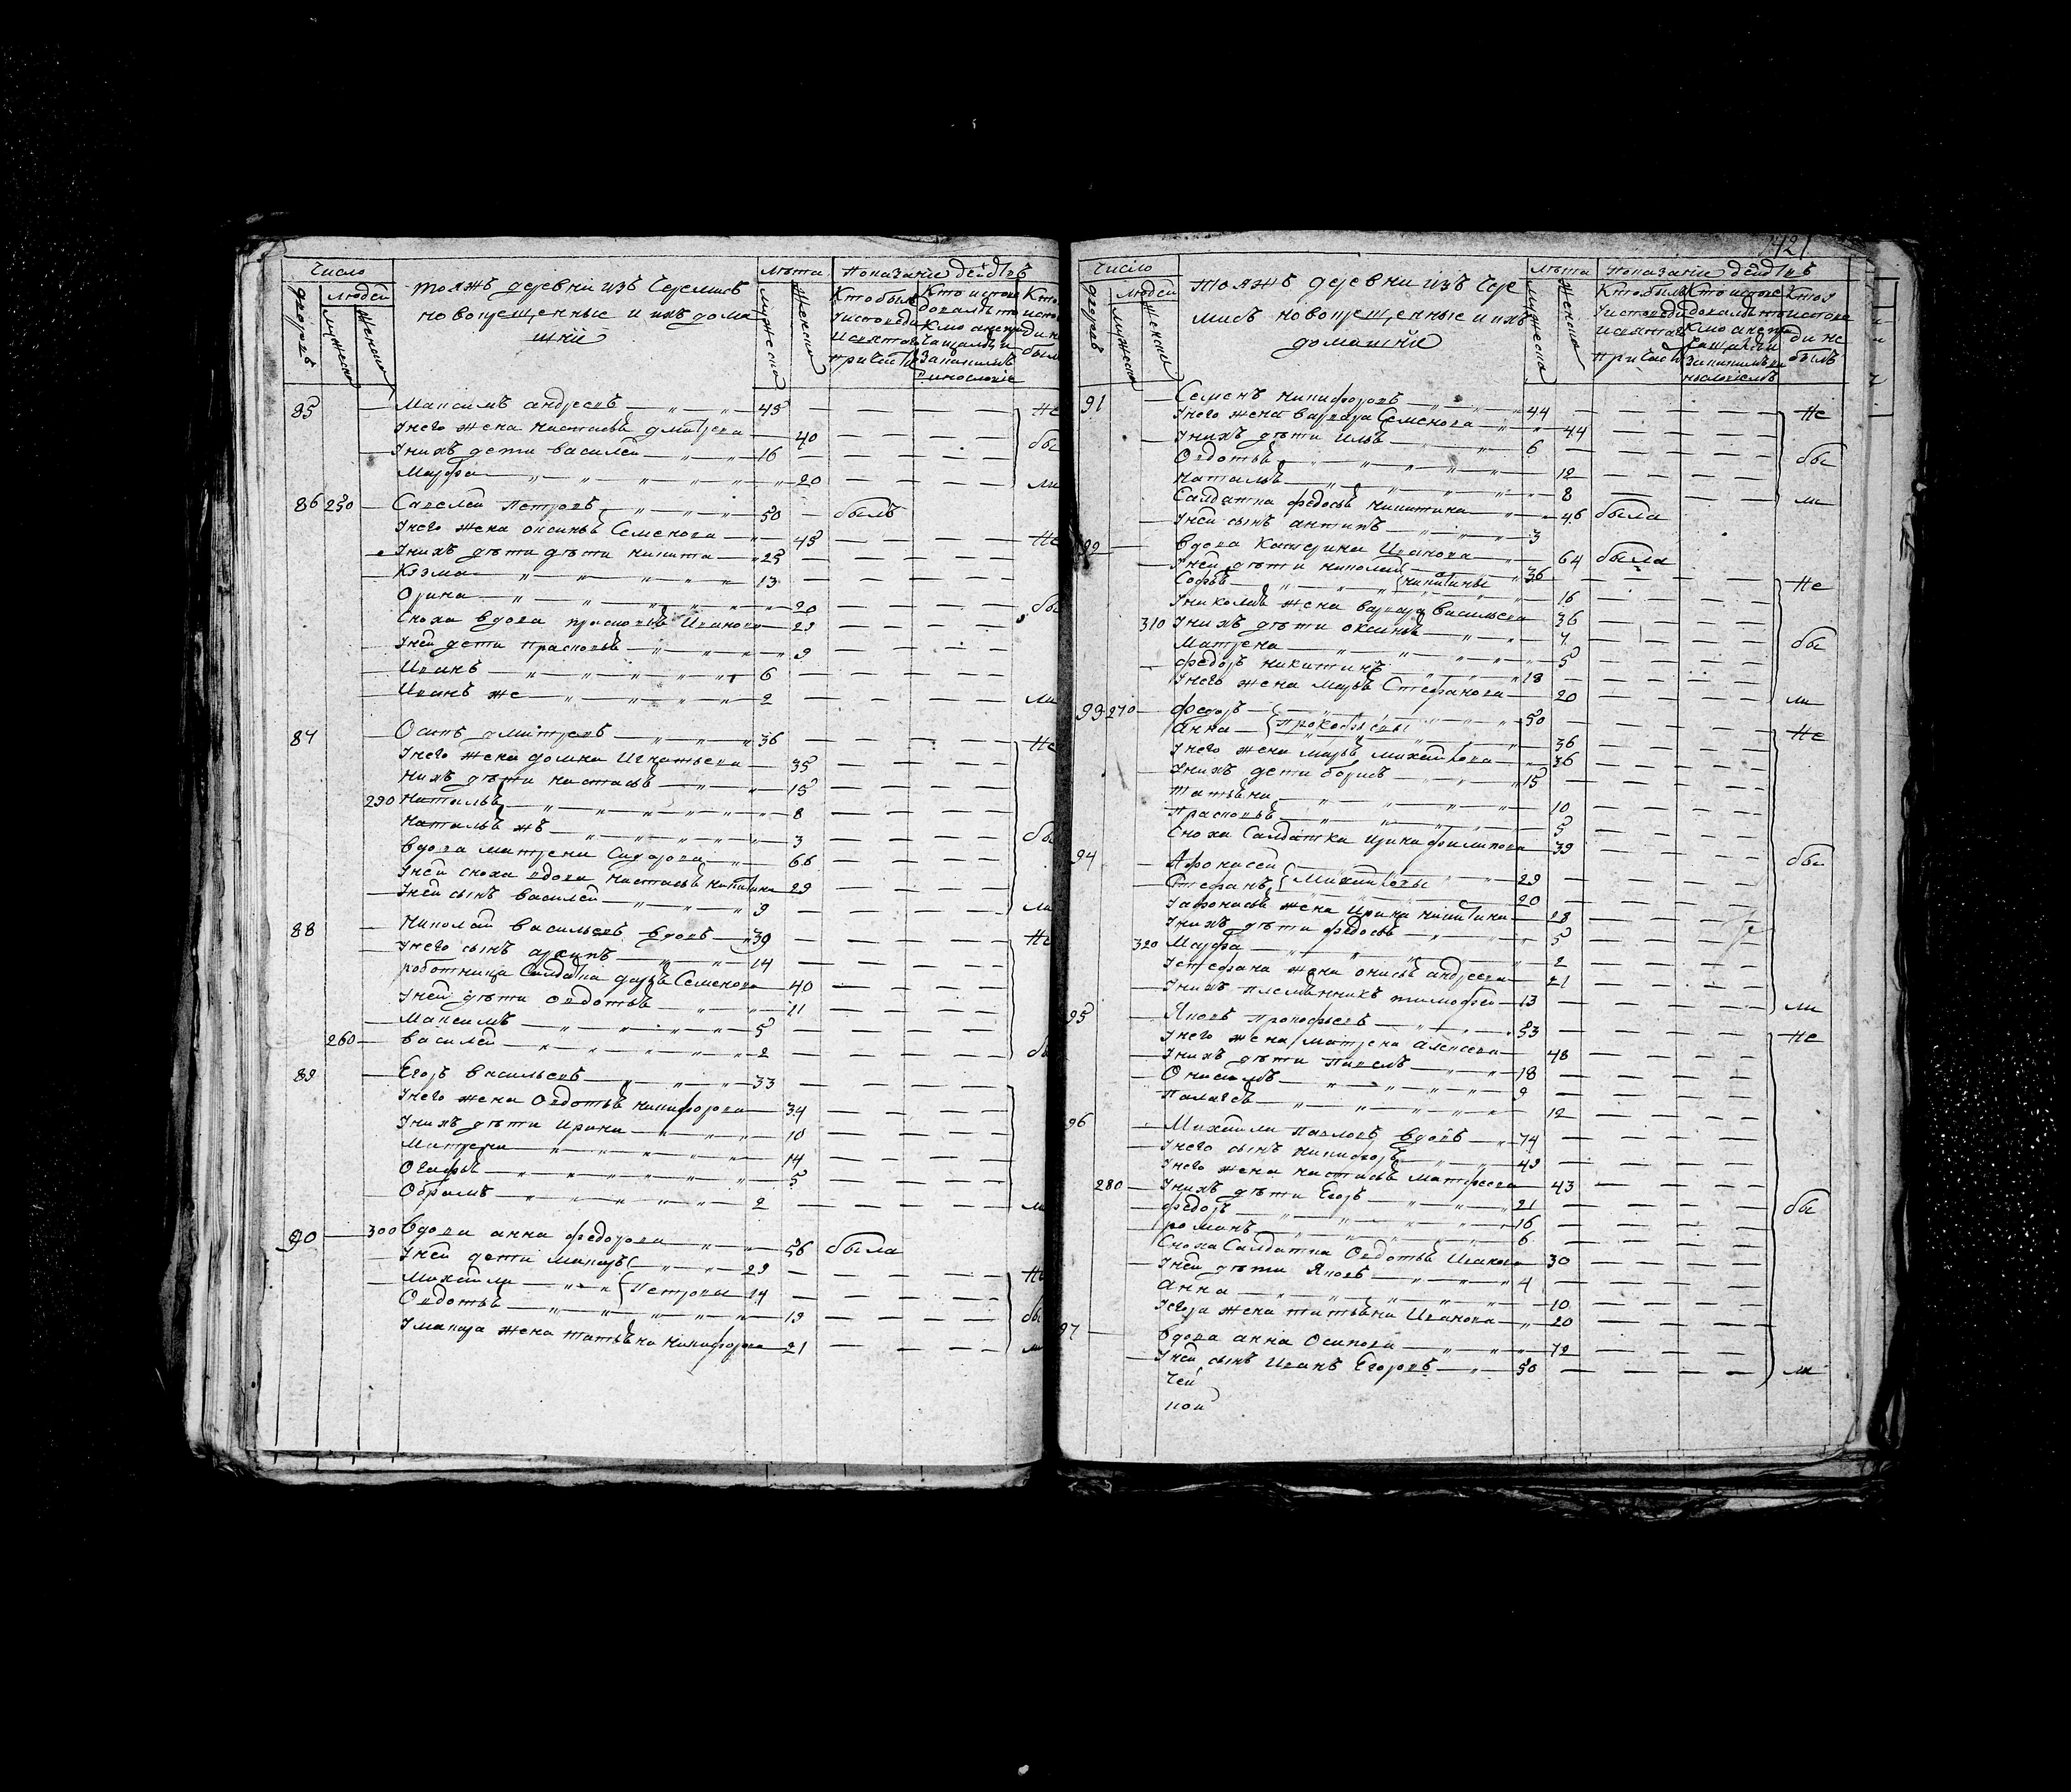 Число
Лѣта
Показаніе дѣйствъ
дворовъ
людей
мужеска
женска
тояжъ деревни изъ Черемисъ
новокрещенные и ихъ дома
шніе
мужеска
женска
Кто былъ
85 Максимъ андреевъ 45
У него жена настасья дмитрева 40
У нихъ дети василей 16
Марфа 20
Не бы ли
86 250 Савелей Петровъ 50 былъ
У него жена оксинья Семенова 45
У нихъ дѣти дѣти никита 25
Кузма 13
Орина 20
Сноха вдова прасковья Иванова 29
У ней дети прасковья 9
Иванъ 6
Иванъ же 2
Не бы ли
87 Осипъ дмитревъ 36
У него жена домна Игнатьева 35
У нихъ дѣти настасья 15
290 Наталья 8
Наталья жъ 3
вдова матрена Сидорова 66
У ней сноха вдова настасья никитина 29
У ней сынъ василей 9
Не бы ли
88 Николай васильевъ вдовъ 39
У него сынъ архипъ 14
работница Салдатка дарья Семенова 40
У ней дѣти овдотья 11
Максимъ 5
260 василей 2
Не бы
89 Егоръ васильевъ 33
У него жена Овдотья никифорова 34
У нихъ дѣти Ирина 10
Матрена 14
Огафья 5
Обрамъ 2
ли
90 300 вдова анна федорова 56 была
У ней дети Макаръ 29
Михайла Петровы 14
Овдотья 19
У макара жена татьяна никифорова 21
Не бы ли
421
Число
Лѣта
Показаніе дѣйствъ
дворовъ
людей
мужеска
женска
тояжъ деревни изъ Чере
мисъ новокрещенные и ихъ
домашніе
мужеска
женска
91 Семенъ никифоровъ 44
У него жена варвара Семенова 44
У нихъ дѣти Илья 6
Овдотья 12
Наталья 8
Не бы ли
Салдатка федосья никитина 46 была
У ней сынъ антипъ 3
92 вдова Катерина Иванова 64 была
У ней дѣти николай 36
Софья никитины 16
У николая жена варвара васильева 36
310 У нихъ дѣти оксинья 7
Матрена 5
федоръ никитинъ 18
У него жена марья Стефанова 20
Не бы ли
93 270 федоръ 50
Анна Прокофьевы 36
У него жена марья михайлова 36
У нихъ дети борисъ 15
татьяна 10
Прасковья 5
Сноха Салдатка Ирина филипова 39
94 Афонасей 29
Стефанъ Михайловы 20
У афонасья жена Ирина никитина 28
У нихъ дѣти федосья 5
320 Марфа 2
У стефана жена онисья андреева 21
У нихъ племянникъ тимофей 13
Не бы ли
95 Яковъ прокофьевъ 53
У него жена матрена алексева 48
У нихъ дѣти Павелъ 18
Онисимъ 9
Палагея 12
96 Михайла павловъ вдовъ 74
У него сынъ никифоръ 49
У него жена настасья Матфеева 43
280 У нихъ дѣти Егоръ 21
федоръ 16
романъ 6
Сноха Салдатка Овдотья Иванова 30
У ней дѣти Яковъ 4
Анна 10
У егора жена татьяна Иванова 20
97 вдова анна Осипова 72
У ней сынъ Иванъ Егоровъ 50
Не бы ли
Чей
кой